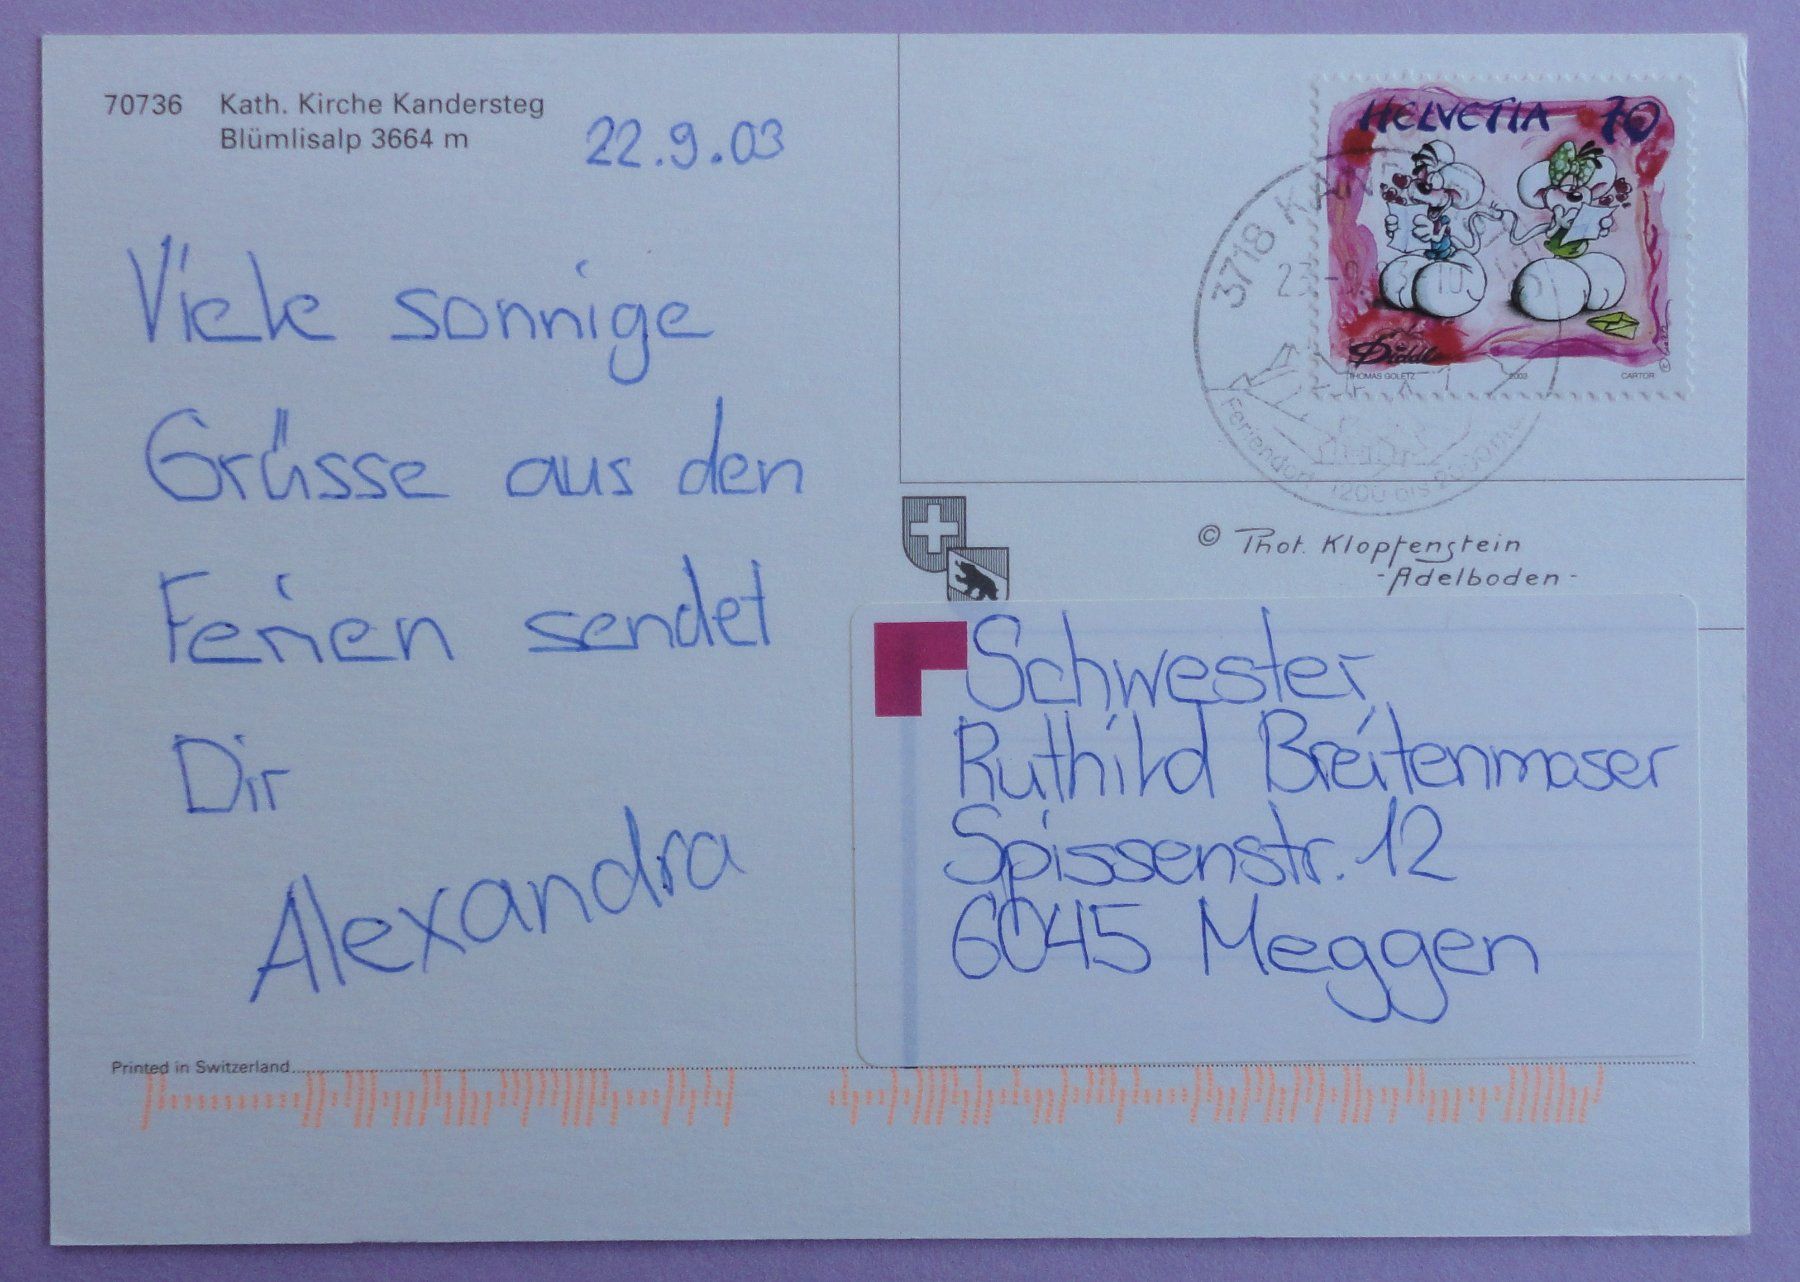 70736 Kath. Kirche Kandersteg
Blümlisalp 3664 m
22.9.03
Viele sonnige
Grüsse aus den
Ferien sendet
Dir
Alexandra
Printed in Switzerland
HELVETIA 70
Diddl
THOMAS GOLETZ 2003 CARTOR
3718
Feriendorf 1200 bis
© Phot. Klopfenstein
-Adelboden-
Schwester
Ruthild Breitenmoser
Spissenstr. 12
6045 Meggen